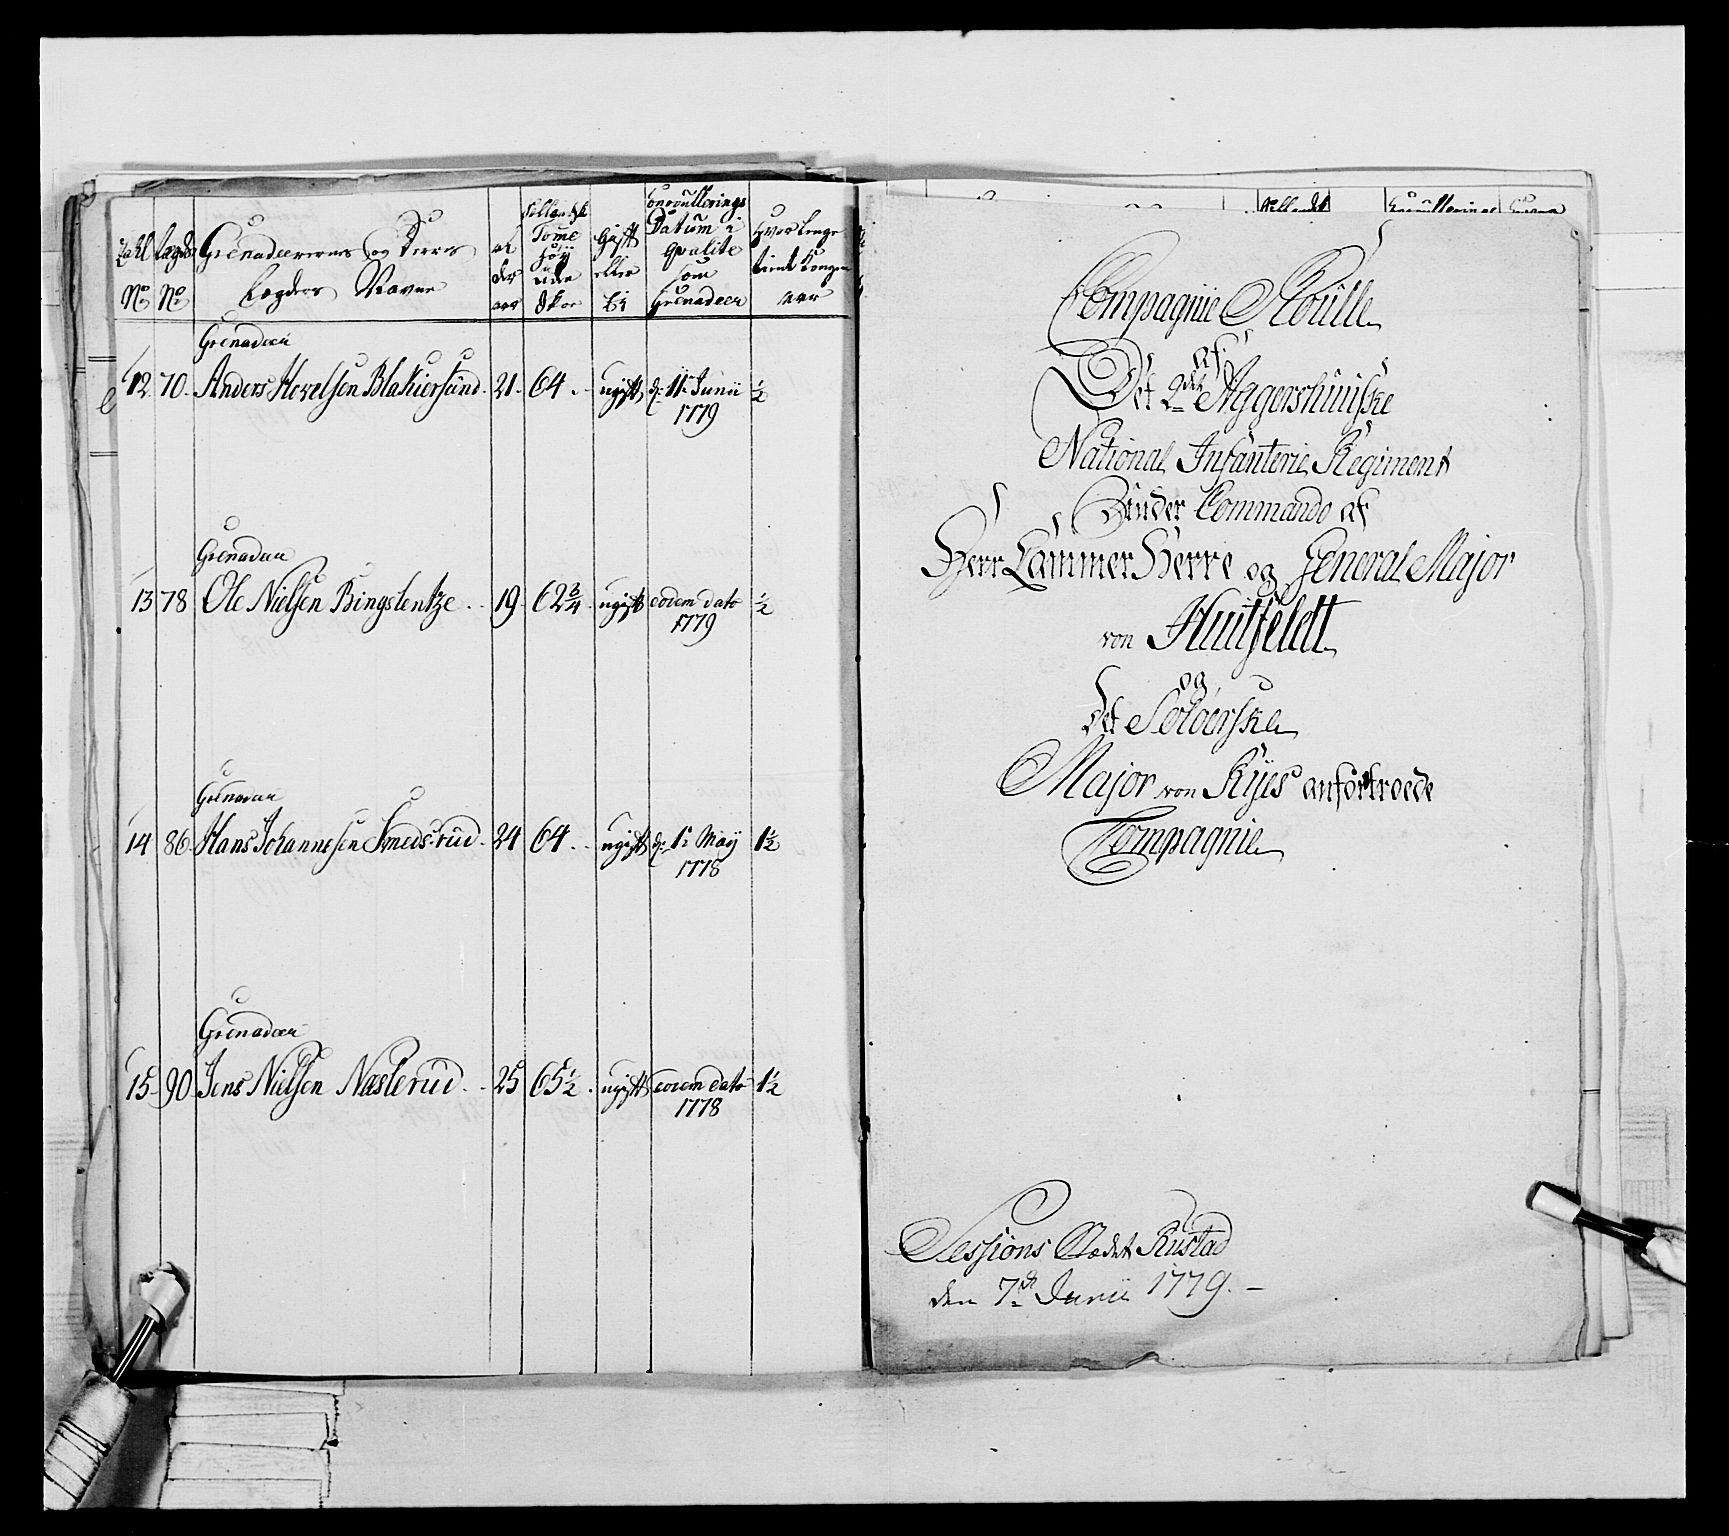 Tahl No
Lægds No
Grenadeerernes og Deres
Lægders Navne
al
der
aar
Sellandsk
Tome
høy
uden
Skoe
Gift
eller
Ei
Enroullerings
Datum i
Qvalite
som
Grenadeer
Hvor lenge
tient Kongen
aar
Grenadeer
12 70. Anders Hovelsen Blakiersund. 21. 64. ugift d: 11te Junii ½
1779
Grenadeer
13 78 Ole Nielsen Bingslentze.. 19. 62¾ ugift eodem dato ½
1779
Grenadeer
14 86. Hans Johannesen Smedsrud. 24 64.. ugift d: 1te Maÿ 1½
1778
Grenadeer
15. 90. Jens Nielsen Næslerud.. 25 65½. ugift eodem dato 1½
1778
Sællandsk Enroullerings
Compagnie Roulle
af
Det 2det Aggershuusiske
National Infanterie Regiment
Under Commando af
Herr Cammer Herre og General Major
von Huitfeldt
og
Det Soloerske
Major von Kÿes anfortroede
Compagnie
Sessions Stædet Rustad
den 7de Junii 1779. –